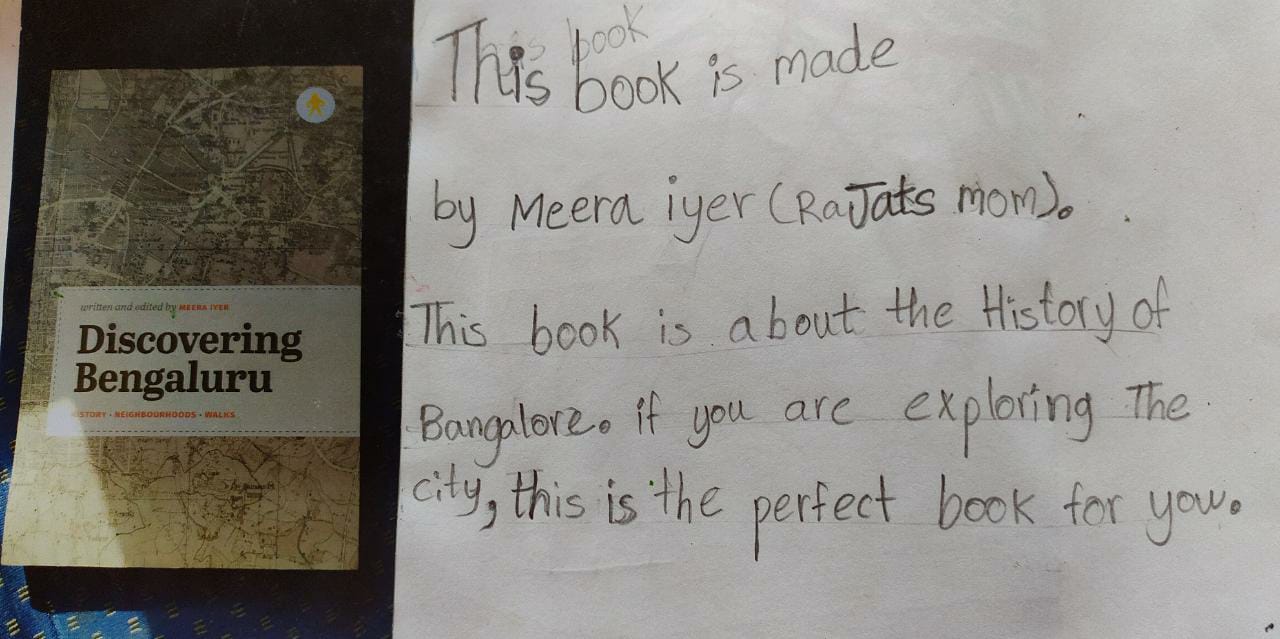 written and edited by MEERA IYER
Discovering
Bengaluru
HISTORY • NEIGHBOURHOODS • WALKS
This book
This book is made
by Meera iyer (RaJats mom).
This book is about the History of
Bangalore. if you are exploring The
city, this is the perfect book for you.